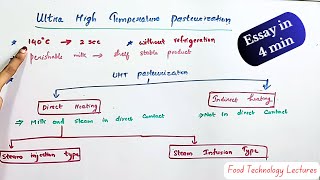 Ultra High Temperature Pasteurization
* 140°C → 2 sec * without refrigeration
perishable milk → shelf stable product
UHT pasteurization
Direct Heating
Indirect heating
→ Milk and Steam in direct Contact
→ Not in direct Contact
Steam injection type
Steam Infusion Type
Essay in
4 min
Food Technology Lectures